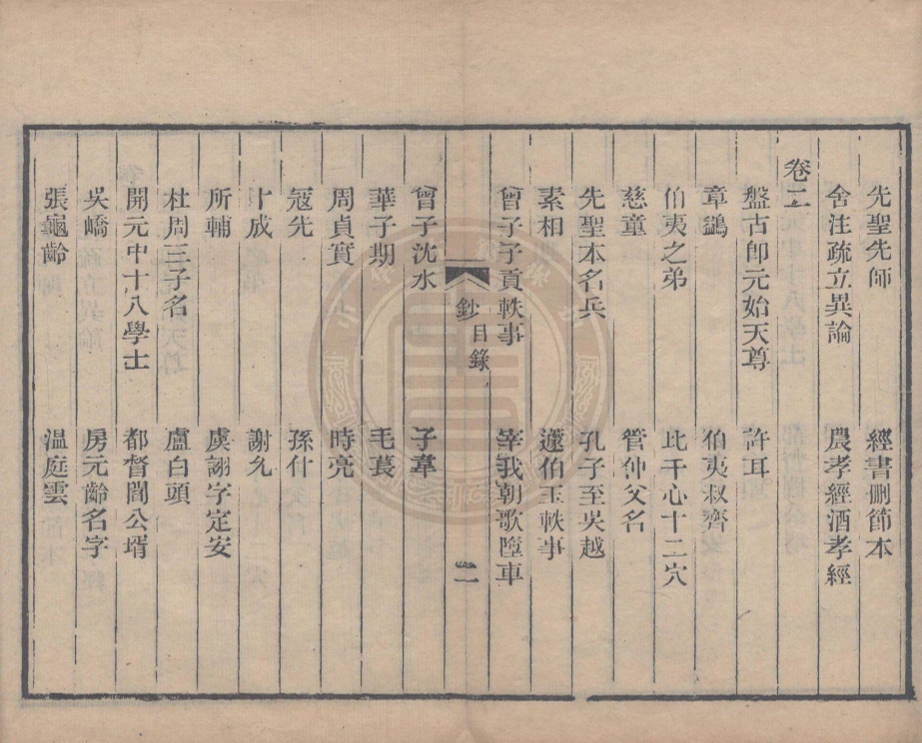 先聖先師　經書刪節本
舍注疏立異論　農孝經酒孝經
卷二
盤古卽元始天尊　許耳
章鷁　伯夷叔齊
伯夷之弟　比干心十二穴
慈童　管仲父名
先聖本名兵　孔子至吳越
素相　蘧伯玉軼事
曾子子貢軼事　宰我朝歌墮車
鈔 目錄 二
曾子沈水　子韋
華子期　毛萇
周貞實　時亮
冦先　孫什
十成　謝允
所輔　虞詡字定安
杜周三子名　盧白頭
開元中十八學士　都督閻公壻
吳嶠　房元齡名字
張龜齡　溫庭雲